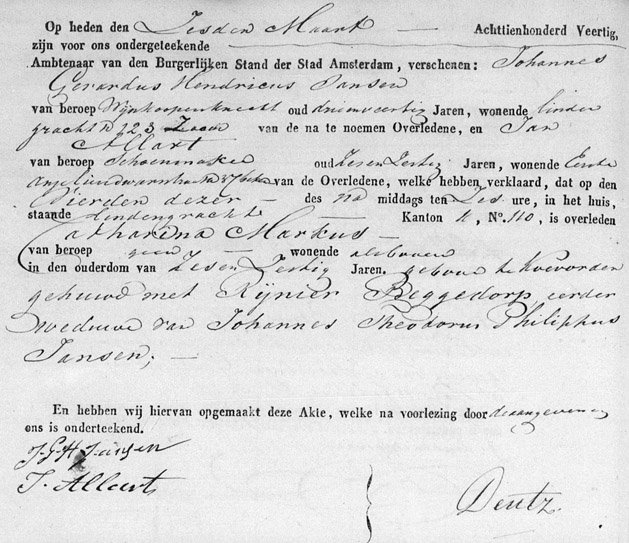 Op heden den Zesden Maart — Achttienhonderd Veertig,
zijn voor ons ondergeteekende
Ambtenaar van den Burgerlijken Stand der Stad Amsterdam, verschenen: Johannes
Gerardus Hendricus Jansen
van beroep Wijnkoopersknecht oud drieenveertig Jaren, wonende linden
gracht N 223 Zoon van de na te noemen Overledene, en Jan
Allart
van beroep Schoenmaker oud Zesenzestig Jaren, wonende Eerste
van de Overledene, welke hebben verklaard, dat op den
Vierden dezer — des na middags ten Zes ure, in het huis,
staande Lindengracht Kanton N.º 110, is overleden
Catharina Markus —
van beroep geen — wonende alsboven
in den ouderdom van Zesenzestig Jaren. geboren te Koevorden
gehuwd met Rijnier Beggedorp eerder
weduwe van Johannes Theodorus Philippus
Jansen; —
En hebben wij hiervan opgemaakt deze Akte, welke na voorlezing door de aangevenen
ons is onderteekend.
J. G. H. Jansen
J. Allart
Deutz.